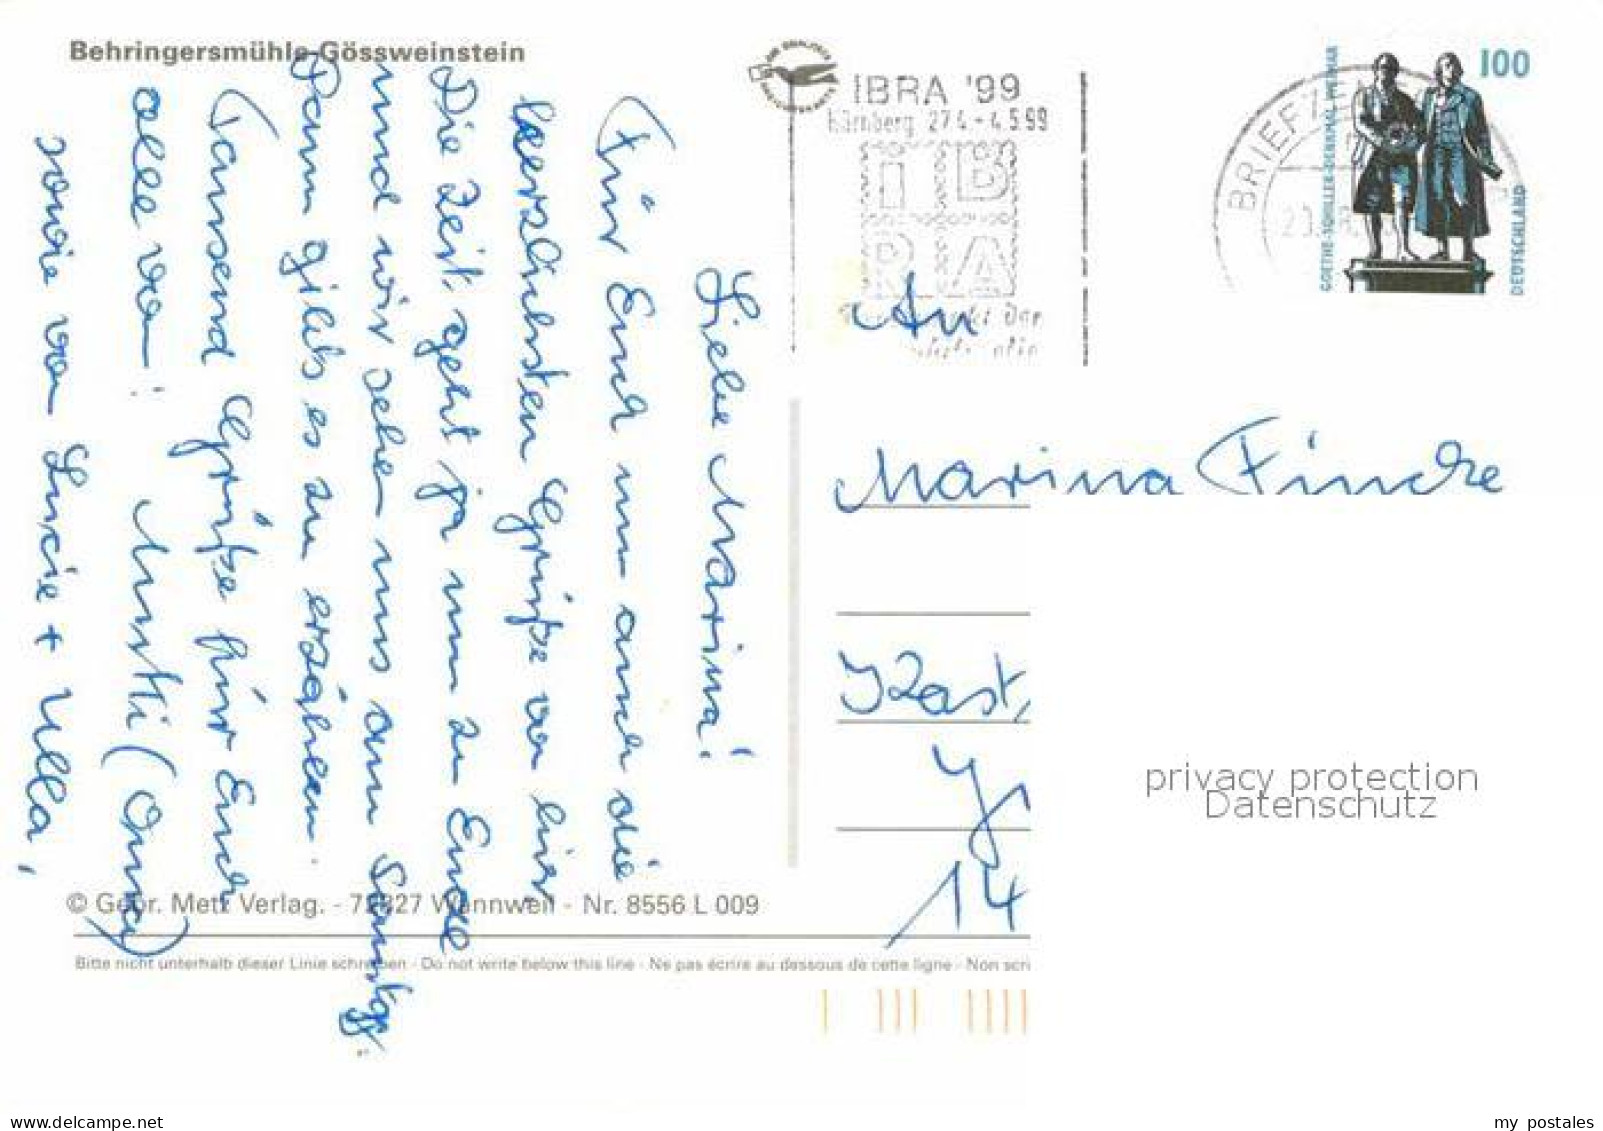 Behringersmühle-Gössweinstein
Liebe Marina!
Für Euch nun auch die
herzlichsten Grüße von hier,
Die Zeit, geht ja nun zu Ende
und wir sehen uns am Samstag.
Dann gibts es zu erzählen.
Tausend Grüße für Euch
alle von: Mutti (Oma)
sowie von Luzie + Ulla,
© Gebr. Metz Verlag. - 72827 Wannweil - Nr. 8556 L 009
Bitte nicht unterhalb dieser Linie schreiben - Do not write below this line - Ne pas écrire au dessous de cette ligne - Non scri
IBRA '99
Nürnberg 27.4.-4.5.99
I B
R A
BRIEFZ
100
GOETHE-SCHILLER-DENKMAL WEIMAR
DEUTSCHLAND
An
Marina Fincke
14
privacy protection
Datenschutz
www.delcampe.net
my_postales